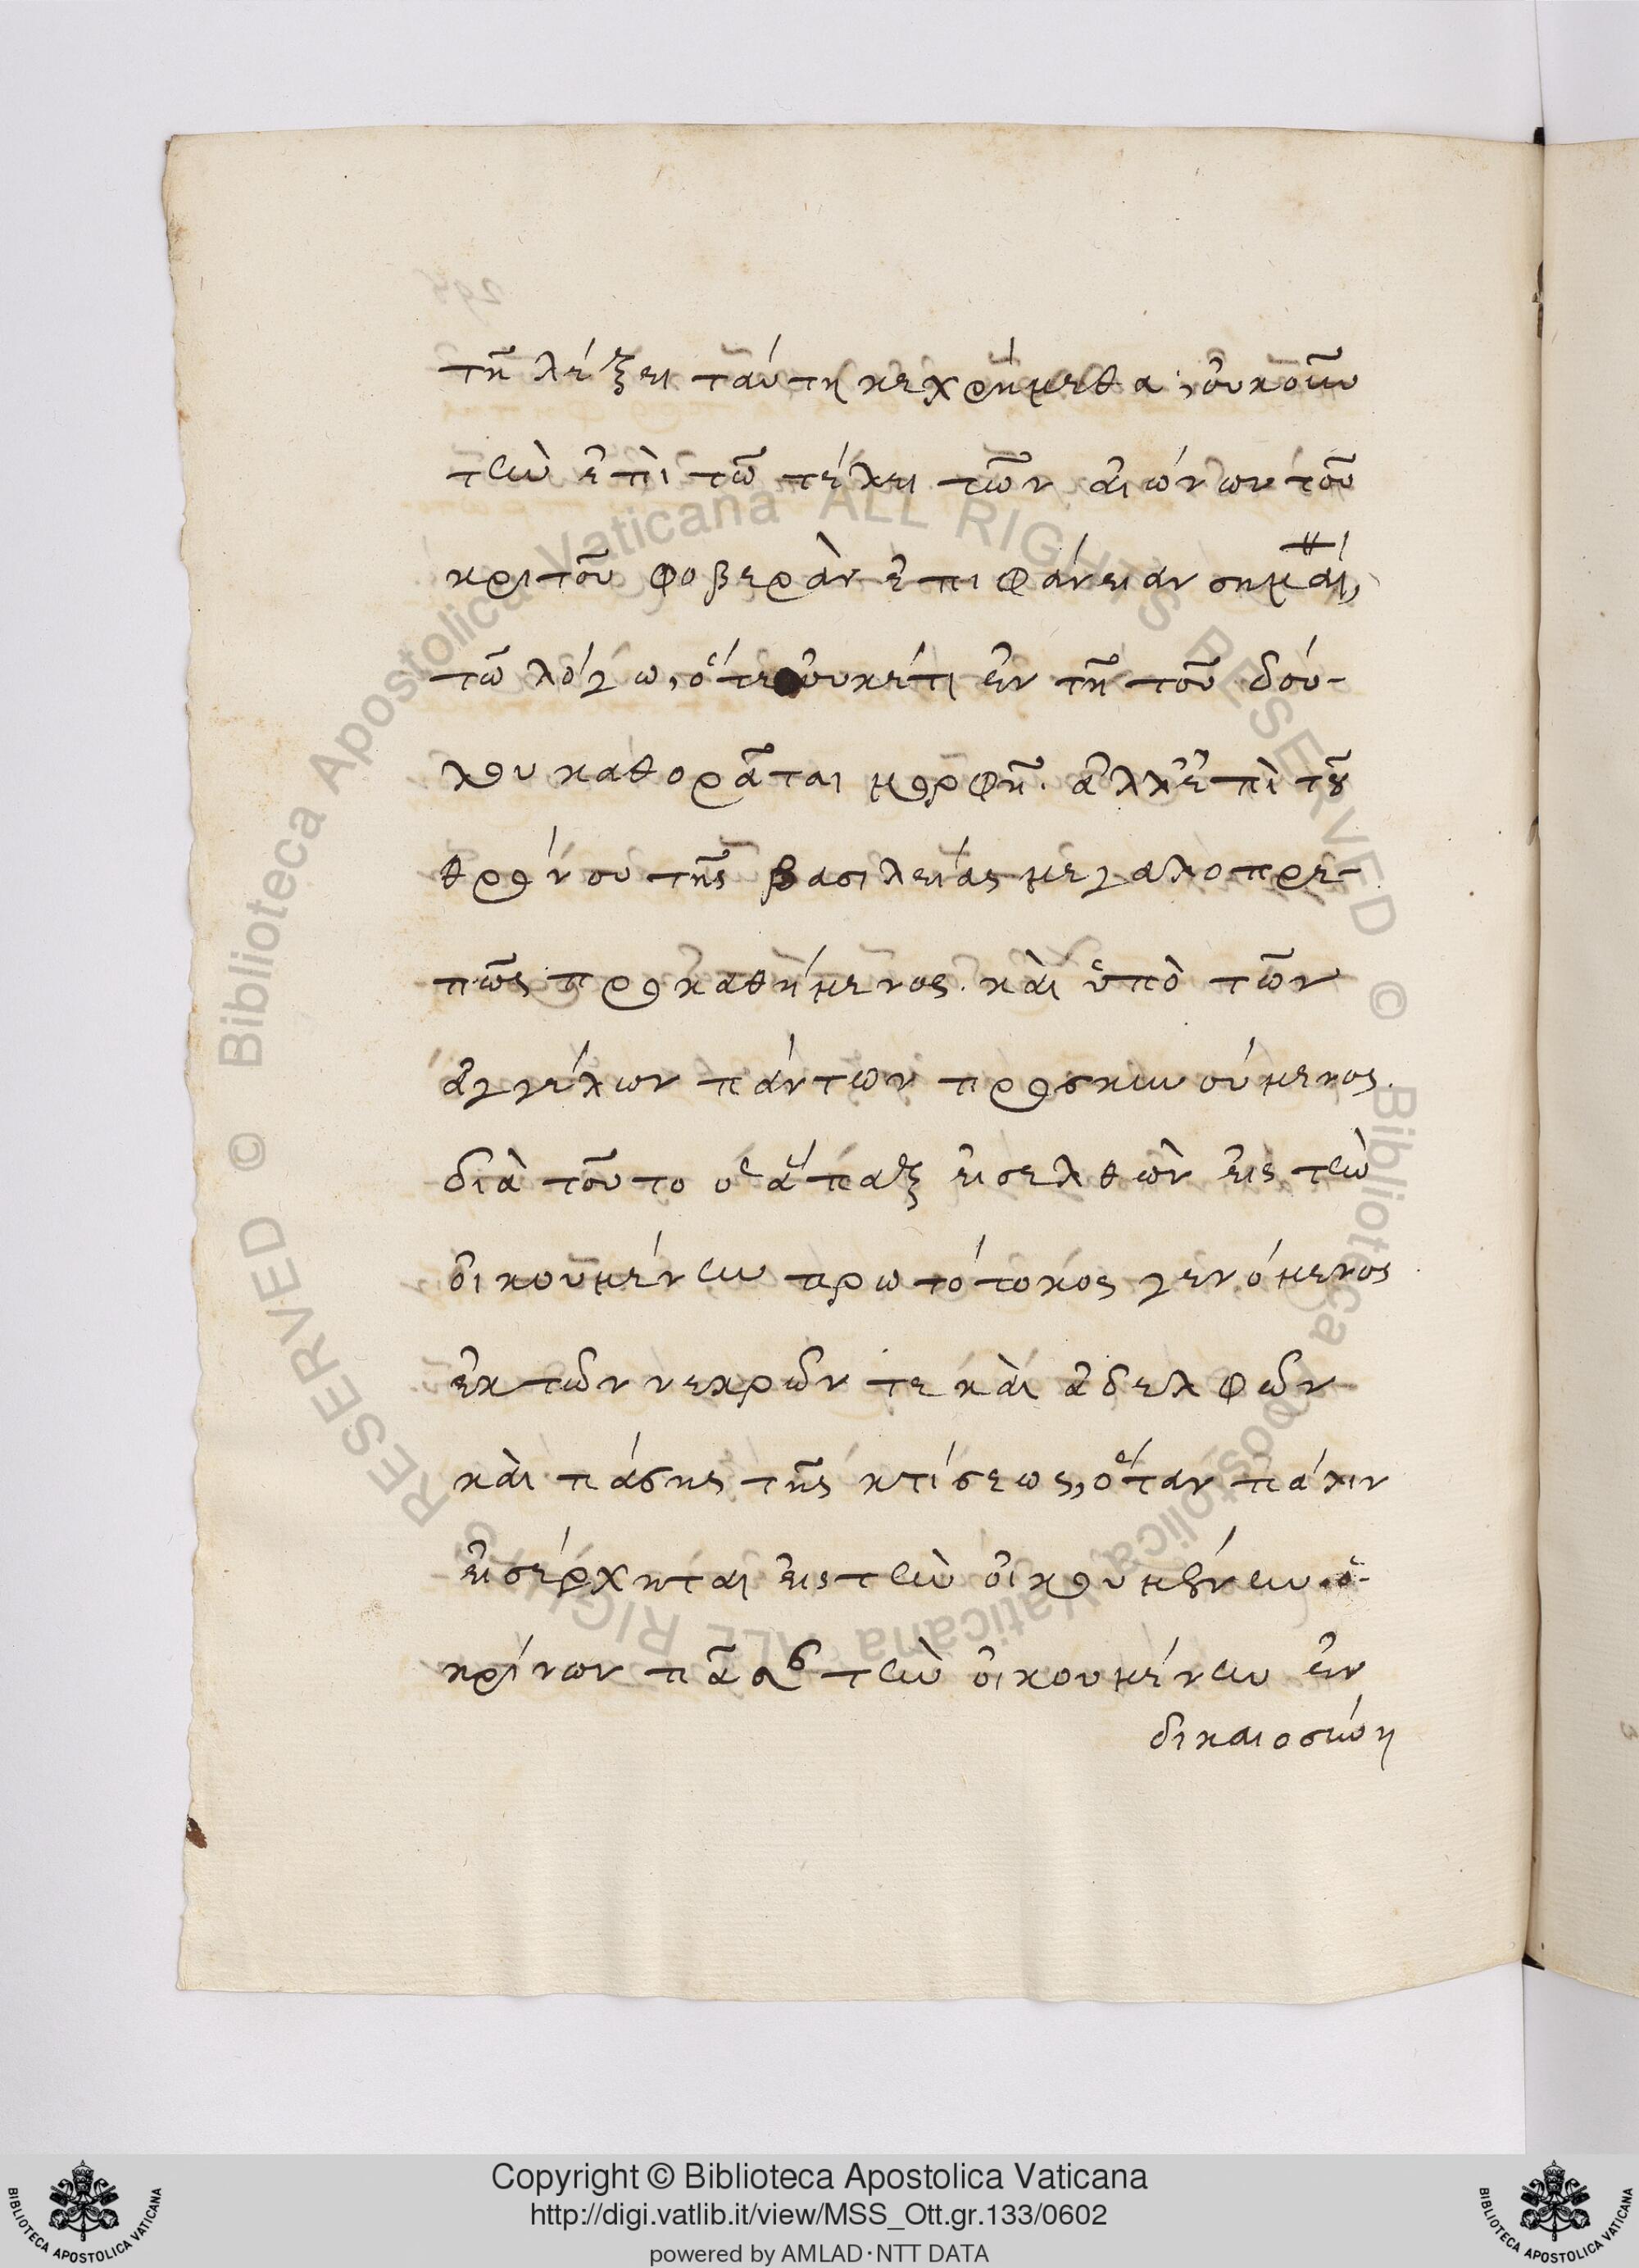 τῆ λέξει ταύτη κεχρήμεθα, οὐκοῦν
τὴν ἐπὶ τῶ τέλει τῶν αἰώνων τοῦ
κριτοῦ φοβερὰν ἐπιφάνειαν σημαί,
τῶ λόγω, ὅτε οὐκέτι ἐν τῆ τοῦ δού-
λου καθορᾶται μορφῆ. ἀλλ' ἐπὶ τοῦ
θρόνου τῆς βασιλείας μεγαλοπρε-
πῶς προκαθήμενος. καὶ ὑπὸ τῶν
ἀγγέλων πάντων προσκυνούμενος.
διὰ τοῦτο ὁ ἅπαξ εἰσελθὼν εἰς τὴν
οἰκουμένην πρωτότοκος γενόμενος
ἐκ τῶν νεκρῶν τε καὶ ἀδελφῶν
καὶ πάσης τῆς κτίσεως, ὅταν πάλιν
εἰσέρχηται εἰς τὴν οἰκουμένην. ὁ
κρίνων πᾶσαν τὴν οἰκουμένην ἐν
δικαιοσύνη
Copyright © Biblioteca Apostolica Vaticana
http://digi.vatlib.it/view/MSS_Ott.gr.133/0602
powered by AMLAD·NTT DATA
BIBLIOTECA APOSTOLICA VATICANA
BIBLIOTECA APOSTOLICA VATICANA
© Biblioteca Apostolica Vaticana ALL RIGHTS RESERVED
© Biblioteca Apostolica Vaticana ALL RIGHTS RESERVED